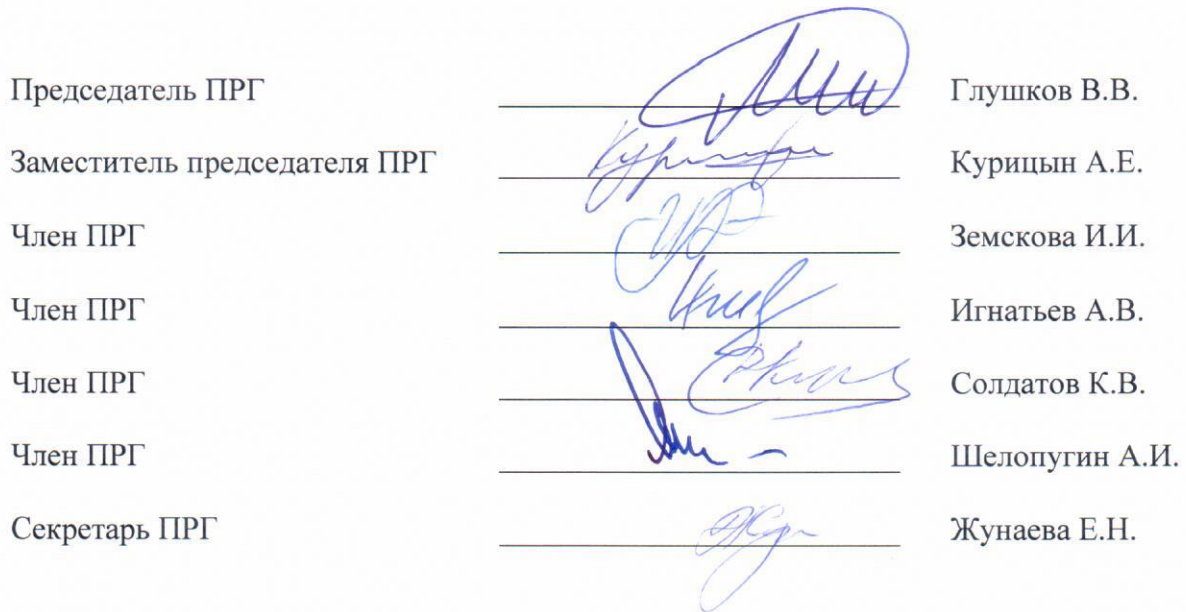 Председатель ПРГ Глушков В.В.
Заместитель председателя ПРГ Курицын А.Е.
Член ПРГ Земскова И.И.
Член ПРГ Игнатьев А.В.
Член ПРГ Солдатов К.В.
Член ПРГ Шелопугин А.И.
Секретарь ПРГ Жунаева Е.Н.